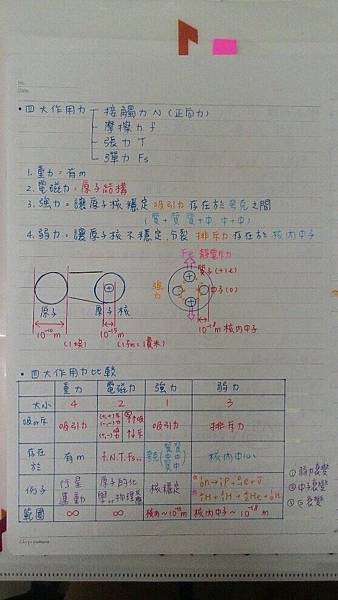 No.
Date
• 四大作用力 接觸力 N (正向力)
摩擦力 f
張力 T
彈力 Fs
1. 重力:有m
2. 電磁力:原子結構
3. 強力:讓原子核穩定 吸引力 存在於 夸克之間
(質+質 質+中 中+中)
4. 弱力:讓原子核不穩定,分裂 排斥力 存在於 核內中子
Fe 靜電斥力
質子(+1e)
強力
中子(0)
原子
原子核
10⁻¹⁰ m
10⁻¹⁵ m
10⁻¹⁸ m 核內中子
(1埃)
(1fm=1費米)
• 四大作用力比較
重力 電磁力 強力 弱力
大小 4 2 1 3
吸or斥 吸引力 吸引力 排斥力
存在於 有m f.N.T.Fs... 質質 質中 中中 核內中心
例子 行星運動 原子的化學 物理 核穩定
範圍 ∞ ∞ 核內~10⁻¹⁵m 核內中子~10⁻¹⁸m